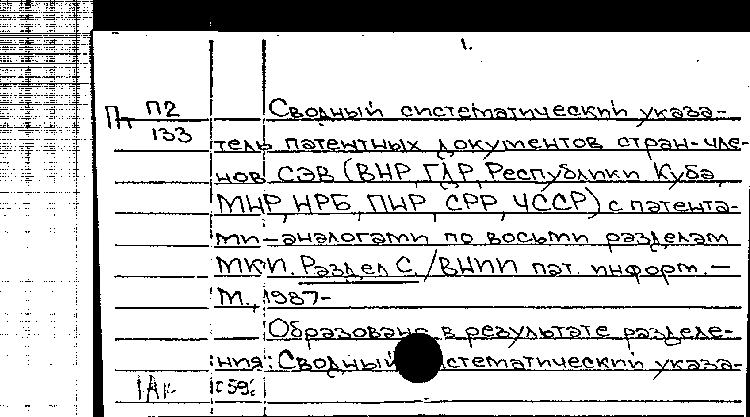 1.
Пт П2/133 Сводный систематический указа-
тель патентных документов стран-чле-
нов СЭВ (ВНР, ГДР, Республики Куба,
МНР, НРБ, ПНР, СРР, ЧССР) с патента-
ми-аналогами по восьми разделам
МКИ. Раздел С. / ВНИИ пат. информ. –
М., 1987-
Образовано в результате разделе-
ния: Сводный систематический указа-